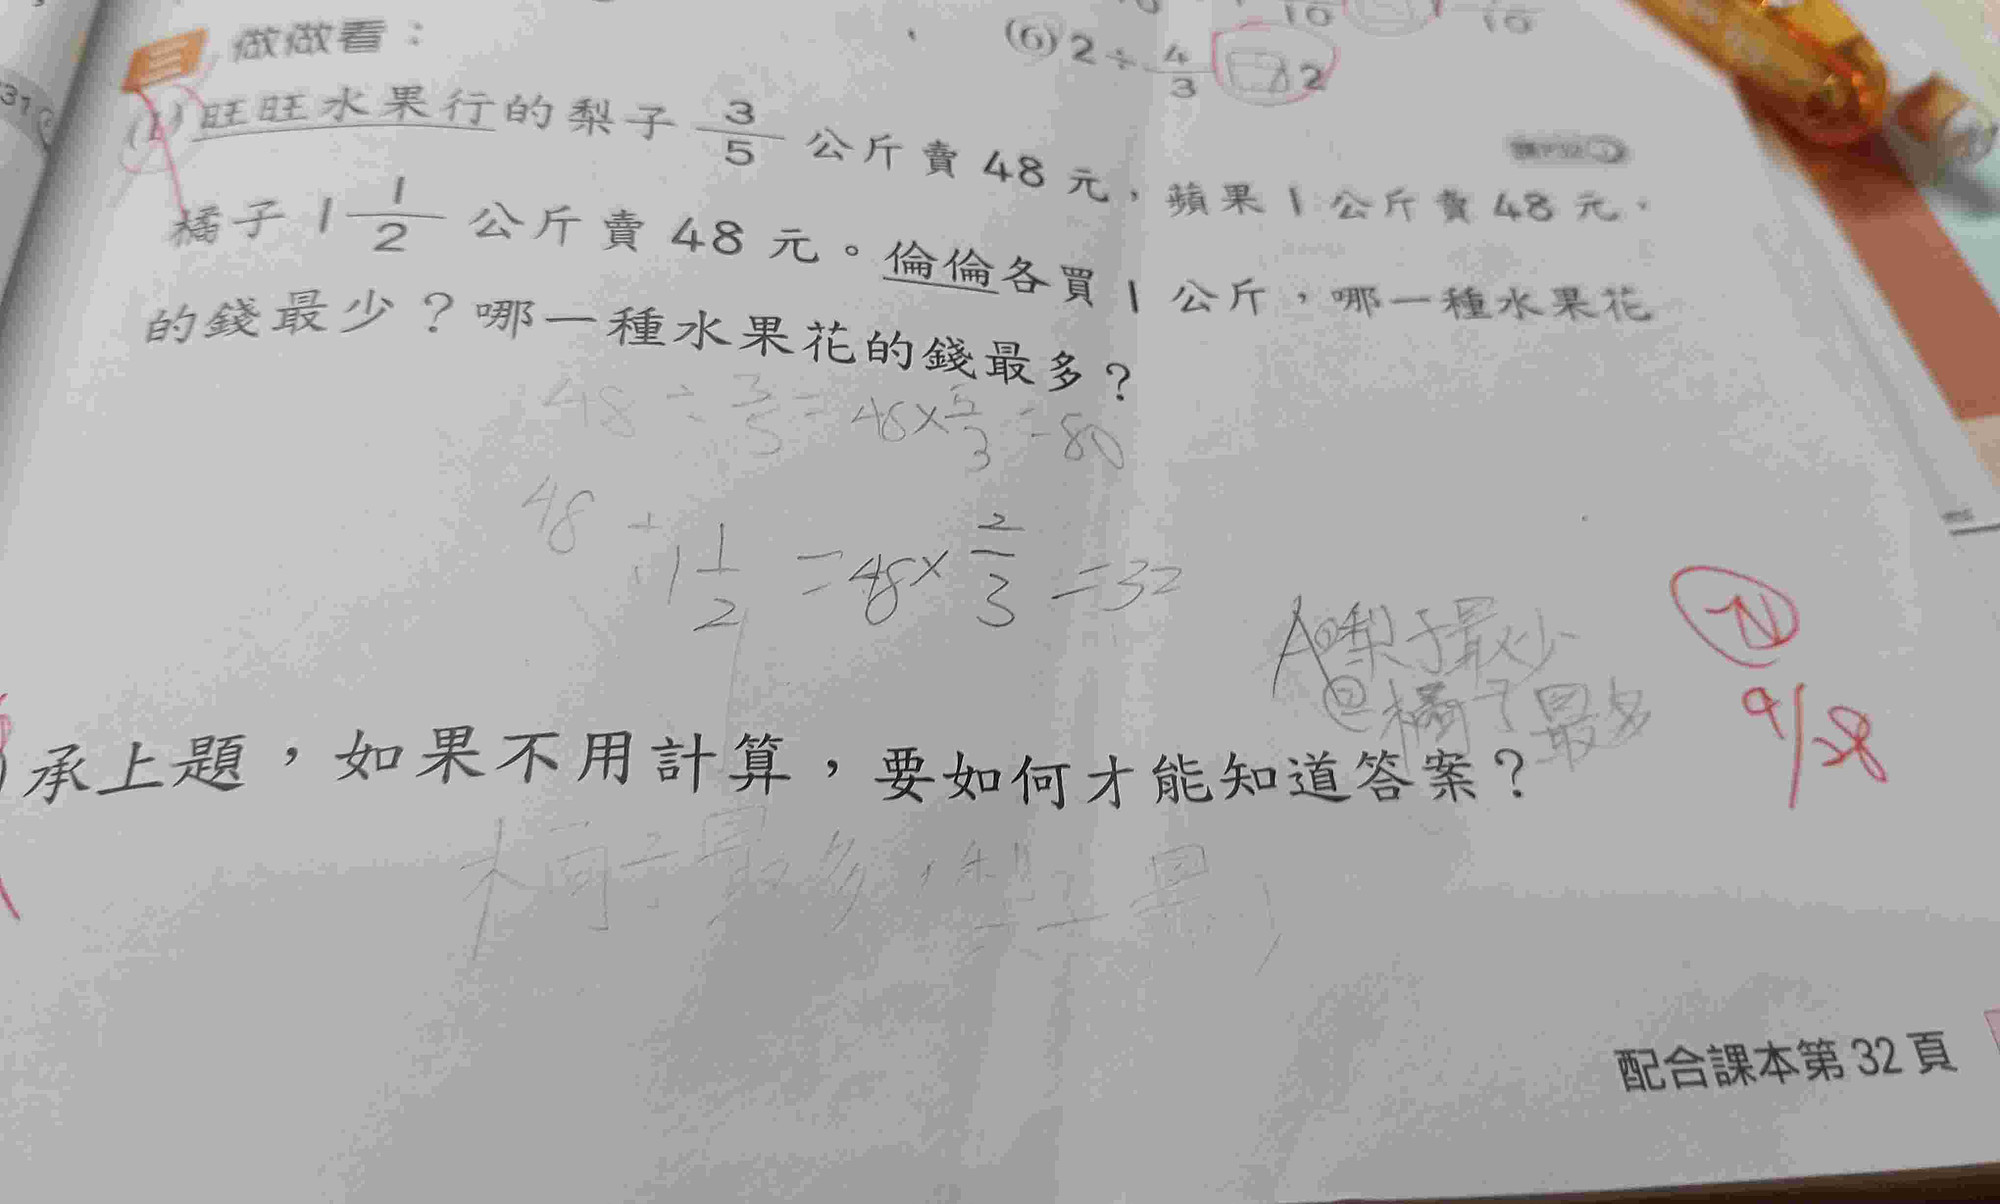 三 做做看：
(6) 2 ÷ 4/3 □ 2
(1) 旺旺水果行的梨子 3/5 公斤賣 48 元，蘋果 1 公斤賣 48 元，
橘子 1 1/2 公斤賣 48 元。倫倫各買 1 公斤，哪一種水果花
的錢最少？哪一種水果花的錢最多？
48 ÷ 3/5 = 48 × 5/3 = 80
48 ÷ 1 1/2 = 48 × 2/3 = 32
A①梨子最少
②橘子最多
9/28
承上題，如果不用計算，要如何才能知道答案？
配合課本第 32 頁